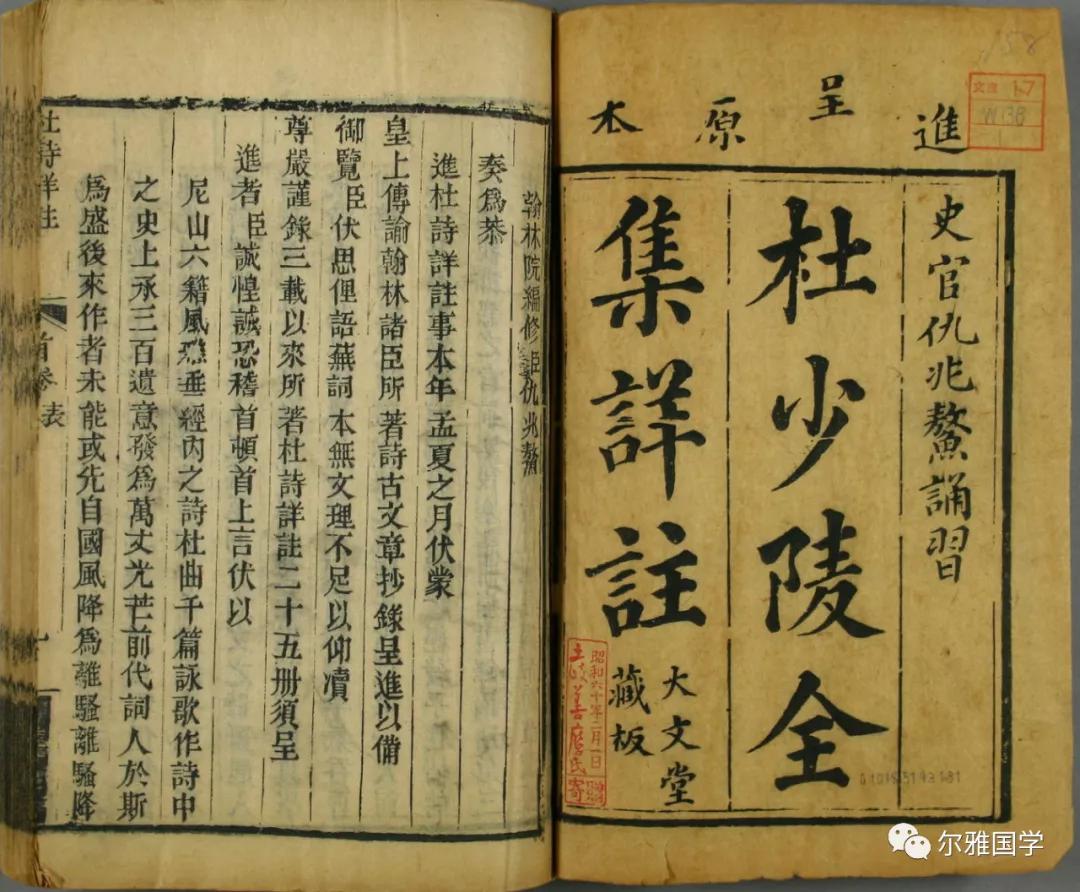 進呈原本
史官仇兆鰲誦習
杜少陵全
集詳註
大文堂
藏板
昭和六十年二月一日
翰林院編修臣仇兆鰲
奏爲恭
進杜詩詳註事本年孟夏之月伏蒙
皇上傳諭翰林諸臣所著詩古文章抄錄呈進以備
御覽臣伏思俚語蕪詞本無文理不足以仰凟
尊嚴謹錄三載以來所著杜詩詳註二十五册須呈
進者臣誠惶誠恐稽首頓首上言伏以
尼山六籍風雅垂經內之詩杜曲千篇詠歌作詩中
之史上承三百遺意發爲萬丈光芒前代詞人於斯
爲盛後來作者未能或先自國風降爲離騷離騷降
杜詩詳註
首卷
表
文庫 17
W138
158
尔雅国学